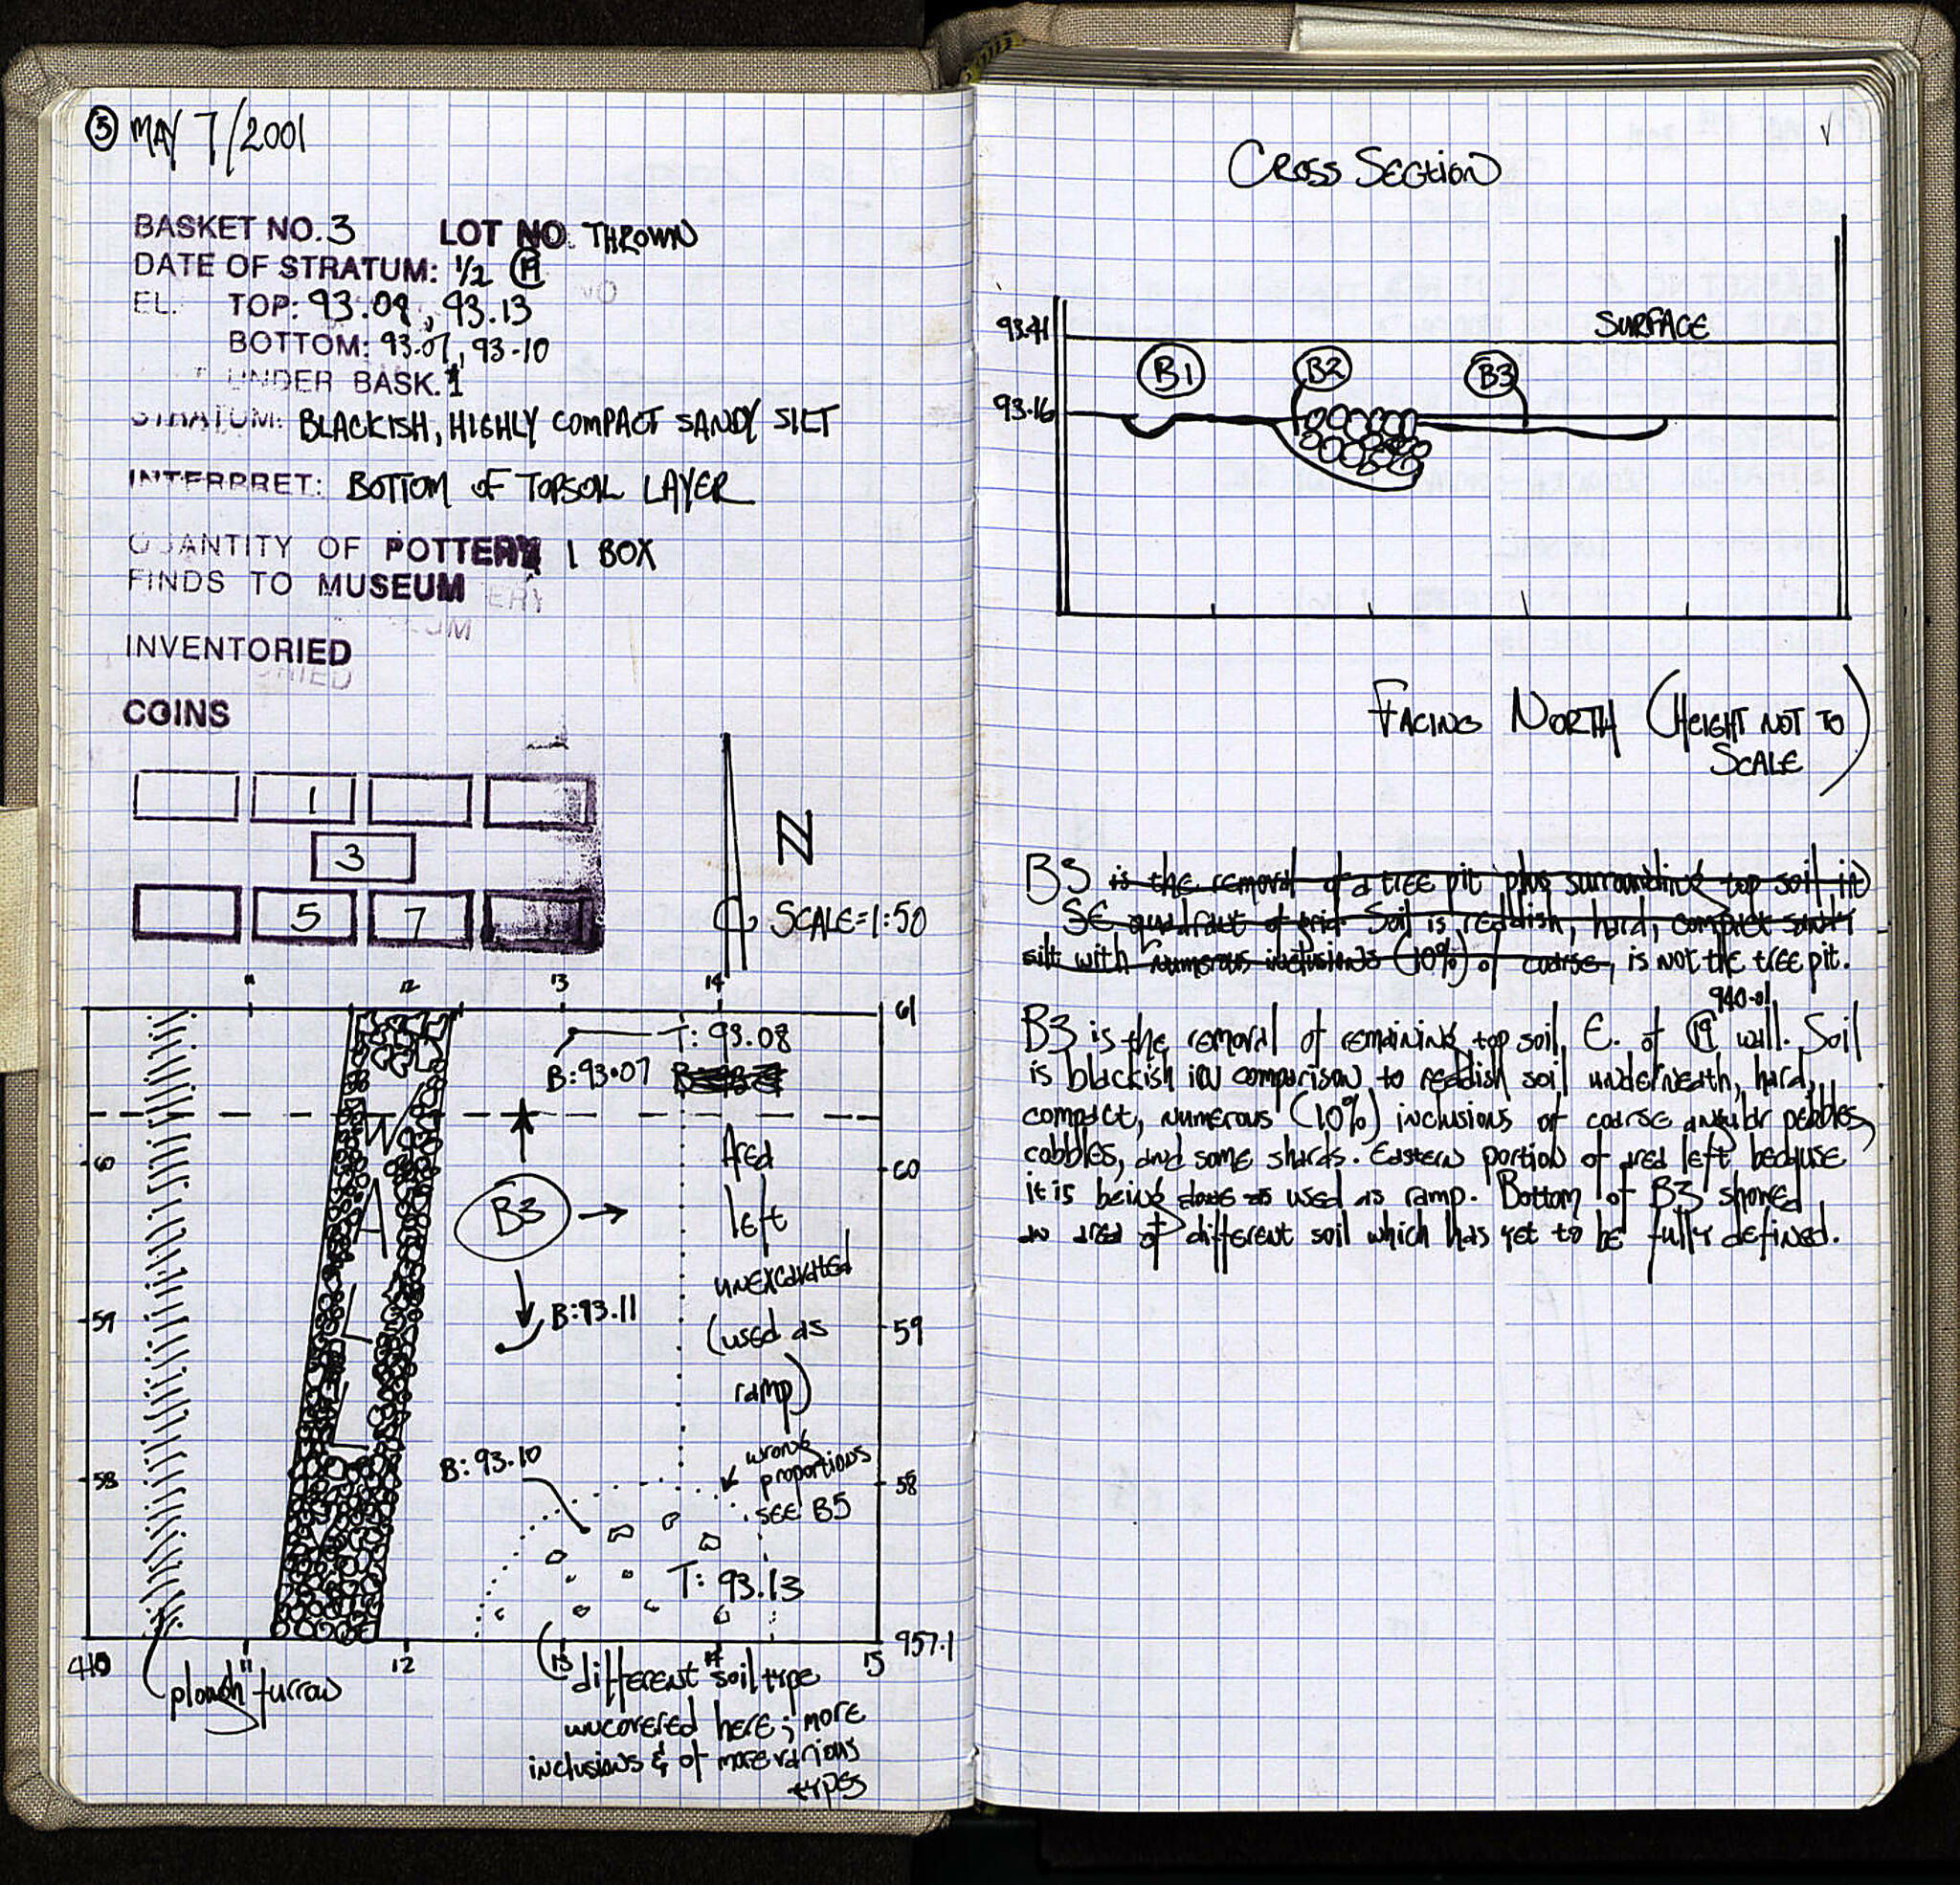 ⑤ MAY 7/2001
BASKET NO. 3 LOT NO. THROWN
DATE OF STRATUM: 1/2 ⑲
EL. TOP: 93.08, 93.13
BOTTOM: 93.07, 93.10
UNDER BASK. 1
STRATUM: BLACKISH, HIGHLY COMPACT SANDY SILT
INTERPRET: BOTTOM OF TOPSOIL LAYER
QUANTITY OF POTTERY 1 BOX
FINDS TO MUSEUM
INVENTORIED
COINS
1
3
5 7
N
SCALE=1:50
11 12 13 14
61
T: 93.08
B: 93.07
WALL
60
60
Area
left
unexcavated
(used as
ramp)
B3
B: 93.11
59
59
B: 93.10
wrong
proportions
see B5
58
58
T: 93.13
957.1
410 11 12 13 14 15
plough furrow
different soil type
uncovered here; more
inclusions & of more various
types
CROSS SECTION
SURFACE
93.41
B1 B2 B3
93.16
FACING NORTH (HEIGHT NOT TO
SCALE)
B3 is the removal of a tree pit plus surrounding top soil in
SE quadrant of grid. Soil is reddish, hard, compact sandy
silt with numerous inclusions (10%) of coarse, is not the tree pit.
B3 is the removal of remaining top soil E. of ⑲ wall. Soil
is blackish in comparison to reddish soil underneath, hard,
compact, numerous (10%) inclusions of coarse angular pebbles,
cobbles, and some shards. Eastern portion of area left because
it is being done as used as ramp. Bottom of B3 showed
an area of different soil which has yet to be fully defined.